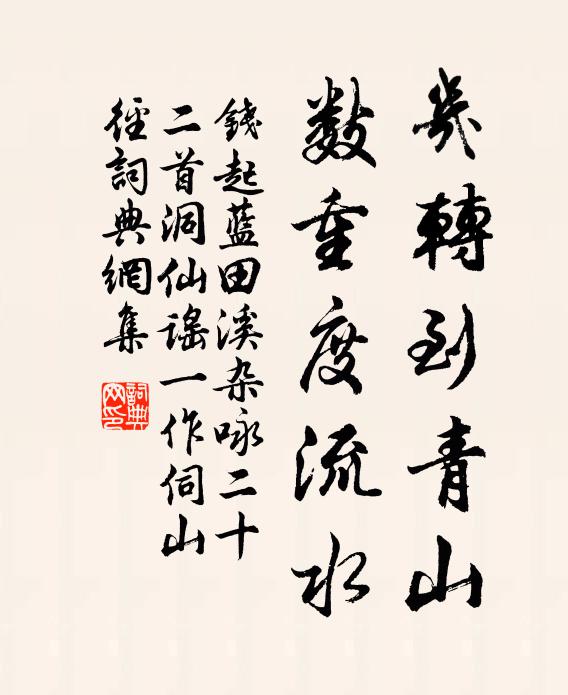 幾轉到青山
數重度流水
錢起藍田溪杂咏二十
二首洞仙謠一作伺山
徑詞典網集
詞典网印